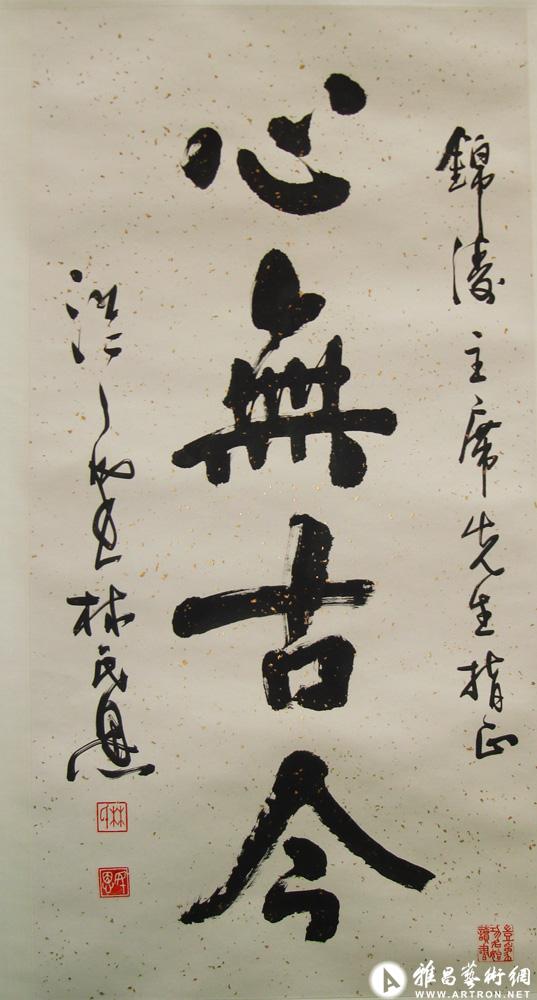 錦淩主席先生指正
心無古今
林民恩
雅昌藝術網
WWW.ARTRON.NET